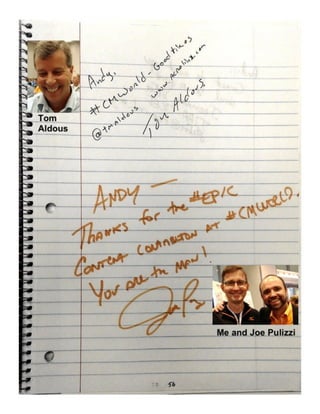 Andy,
#CMWorld - Good times
@tmaldous
Tom Aldous
Tom
Aldous
ANDY —
THANKS FOR the #EPIC
CONTENT AT #CMWORLD.
YOU ARE the MAN!
Me and Joe Pulizzi
56